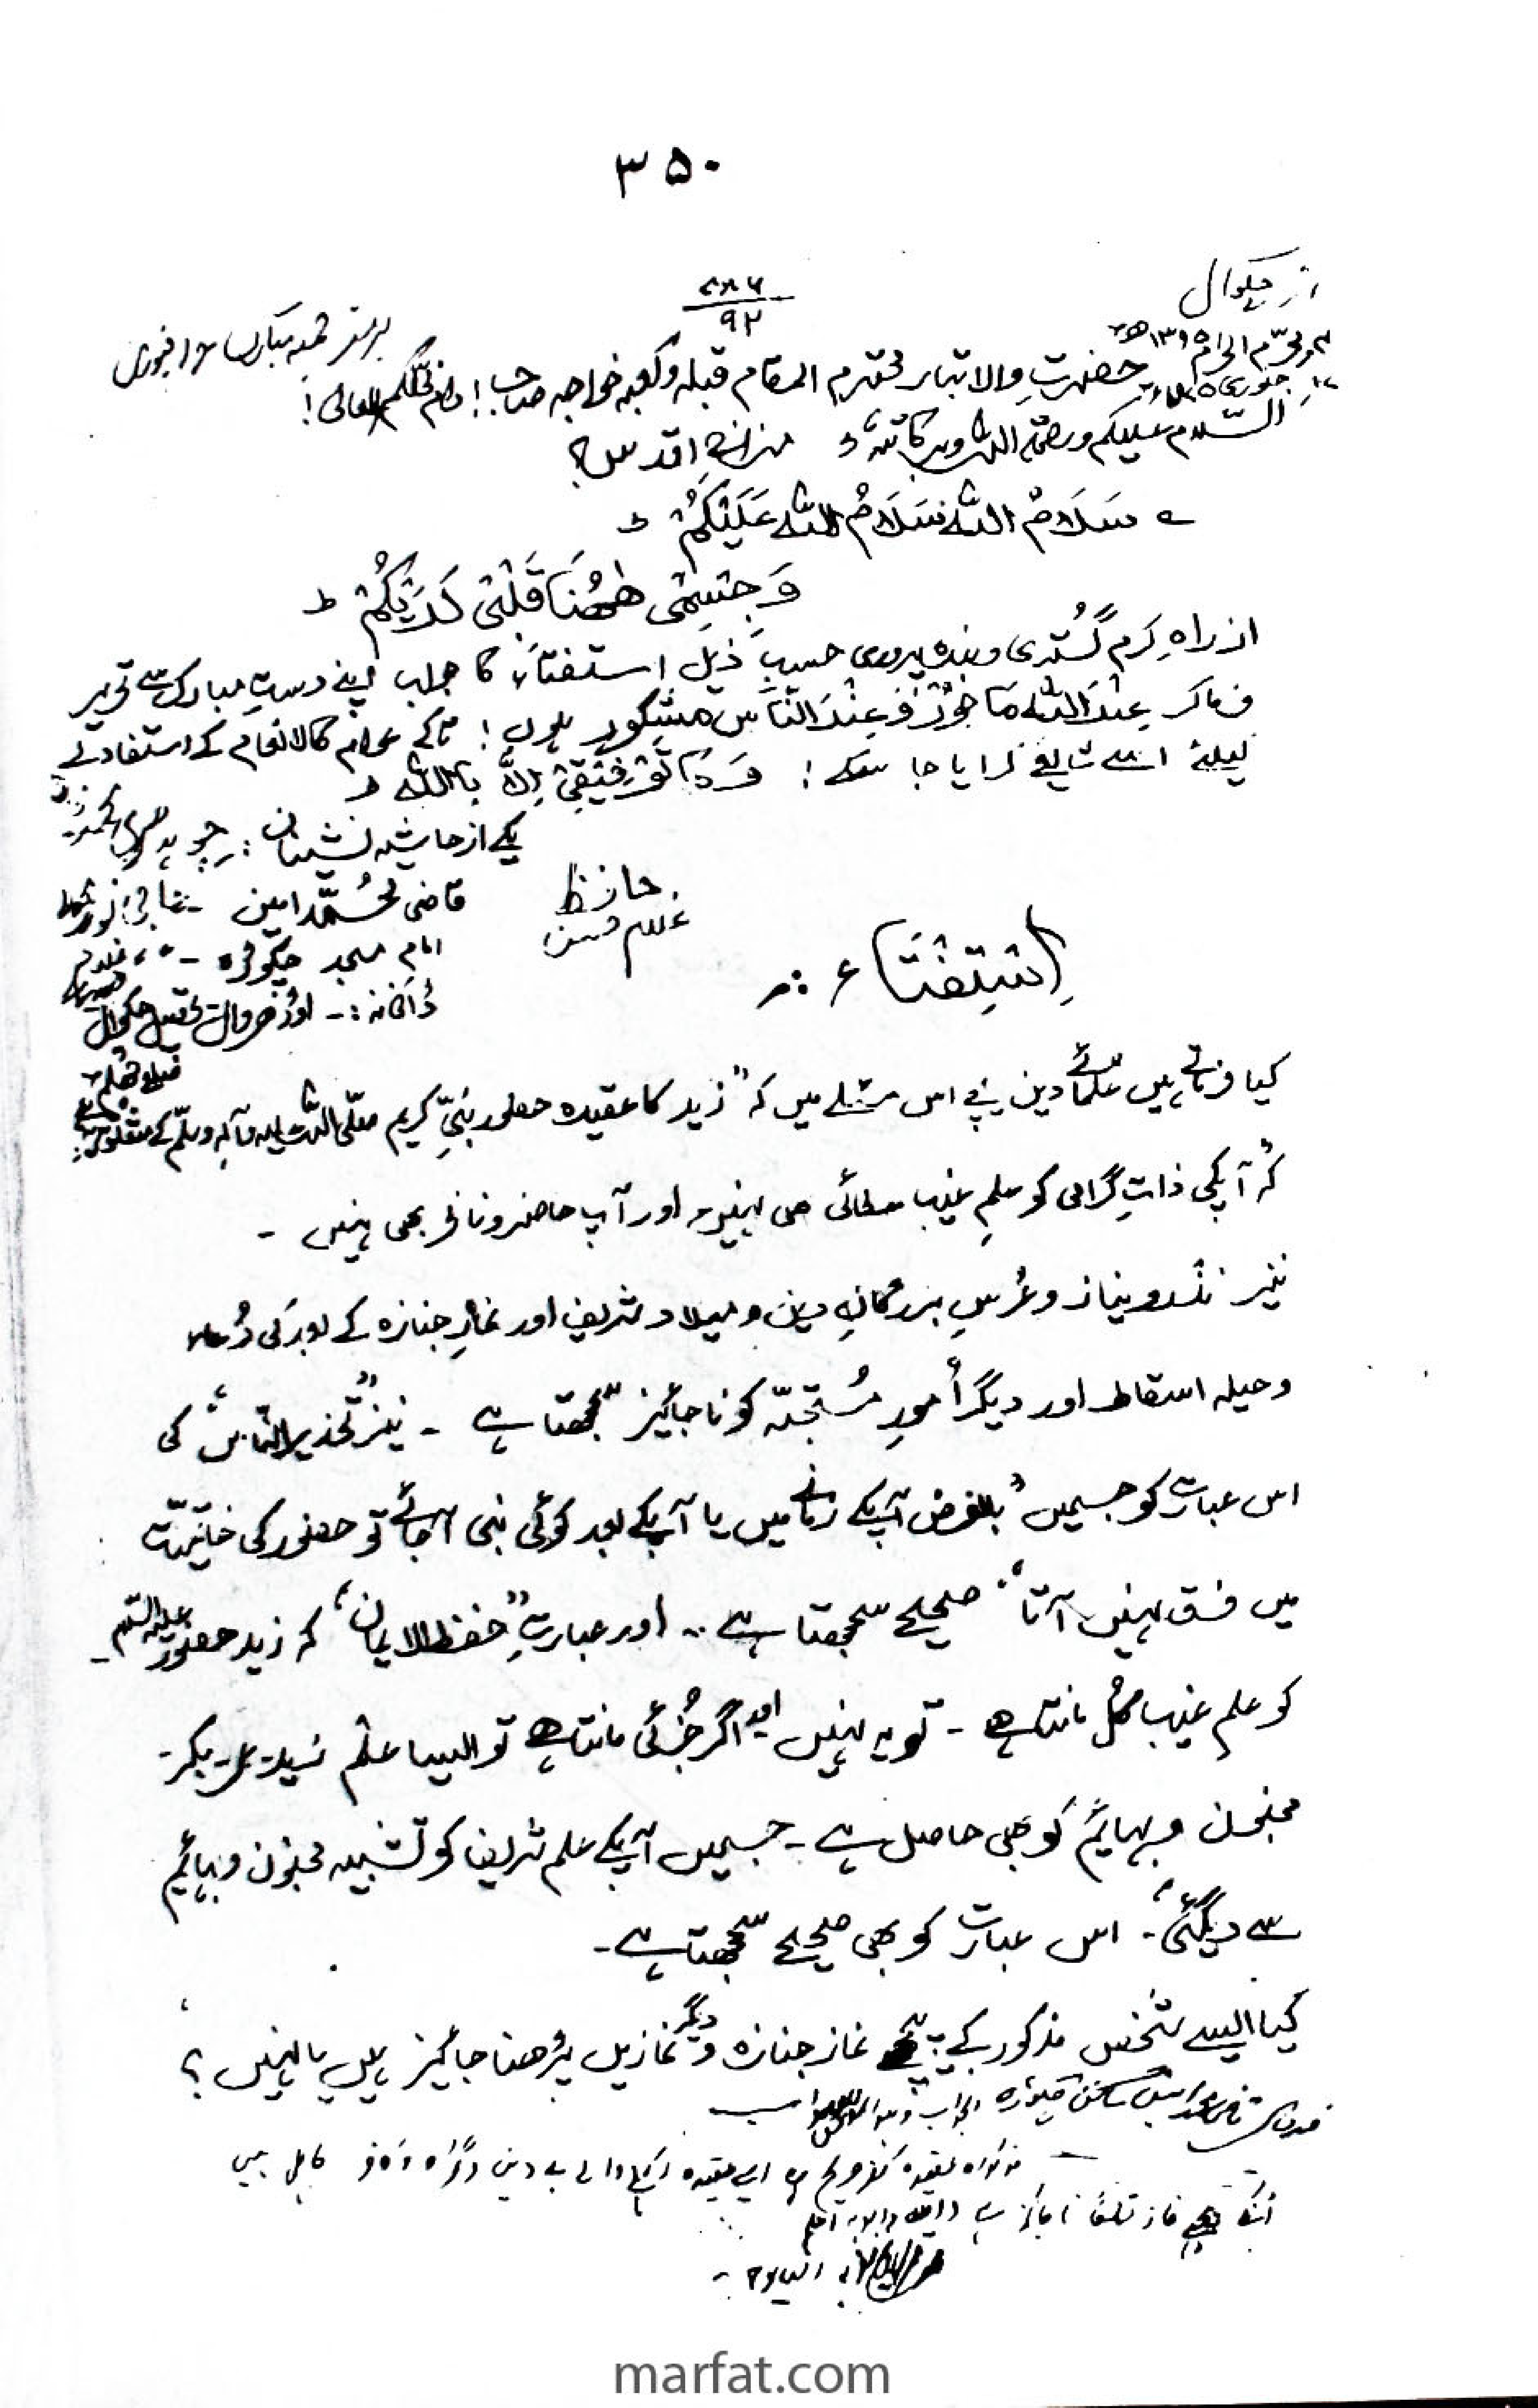 ۳۵۰
از چکوال
۷۸۶
۹۲
محرّم الحرام ۱۳۹۵ھ
جنوری ۷۵ء
حضرتِ والا تبار محترم المقام قبلہ و کعبہ خواجہ صاحب! دام ظلکم العالی!
السّلام علیکم ورحمۃ اللہ وبرکاتہٗ ط مزاجِ اقدس؟
سَلَامُ اللّٰہِ سَلَامُ اللّٰہِ عَلَیْکُمْ ط
وَجِسْمِیْ ھٰھُنَا قَلْبِیْ لَدَیْکُمْ ط
از راہِ کرم گُستری و بندہ پروری حسبِ ذیل استفتاء کا جواب اپنے دستِ مبارک سے تحریر
فرما کر عِنْدَ اللّٰہ مَاجُوْر وَ عِنْدَ النَّاس مشکور ہوں! تاکہ عوام کالانعام کے استفادے
کیلئے اسے شایع کرایا جا سکے! وَمَا تَوْفِیْقِیْ اِلَّا بِاللّٰہ ط
یکے از حاشیہ نشینان:
قاضی محُمّد امین
حافظ
غلام حسن
امام مسجد چکوڑہ
ڈاکخانہ:- اوڈھروال تحصیل چکوال
ضلع جہلم
اِسْتِفْتَاء:-
کیا فرماتے ہیں علمائے دین بیچ اس مسئلے میں کہ "زید کا عقیدہ حضور نبیِّ کریم صلّی اللہ علیہ وآلہ وسلّم کے متعلق
کہ آپکی ذاتِ گرامی کو علمِ غیب عطائی بھی نہیں اور آپ حاضر و ناظر بھی نہیں -
نیز نذر و نیاز و عُرسِ بزرگانِ دین و میلاد شریف اور نمازِ جنازہ کے بعد کی دُعاء
و حیلہ اسقاط اور دیگر اُمورِ مُستحبّہ کو ناجائیز سمجھتا ہے - نیز "تحذیر الناس" کی
اس عبارت کو جسمیں "بالفرض آپکے زمانے میں یا آپکے بعد کوئی نبی آجائے تو حضور کی خاتمیّت
میں فرق نہیں آتا" صحیح سمجھتا ہے - اور عبارتِ "حفظ الایمان" کہ زید حضور علیہ السّلام -
کو علمِ غیب کُل مانتا ہے - تو یہ نہیں اور اگر جُزئی مانتا ہے تو ایسا علم زید - عمر - بکر -
مجنون و بہائیم کو بھی حاصل ہے - جسمیں آپکے علم شریف کو تشبیہ مجنون و بہائیم
سے دیگئی" - اس عبارت کو بھی صحیح سمجھتا ہے -
کیا ایسے شخص مذکور کے پیچھے نماز جنازہ و دیگر نمازیں پڑھنا جائیز ہیں یا نہیں؟
الجواب وھو الموفق للصواب
مذکورہ عقیدہ کفر صریح ہے ایسے عقیدہ رکھنے والے بے دین و گمراہ و کافر کامل ہیں
اُنکے پیچھے نماز قطعًا ناجائز ہے واللہ ورسولہ اعلم
marfat.com